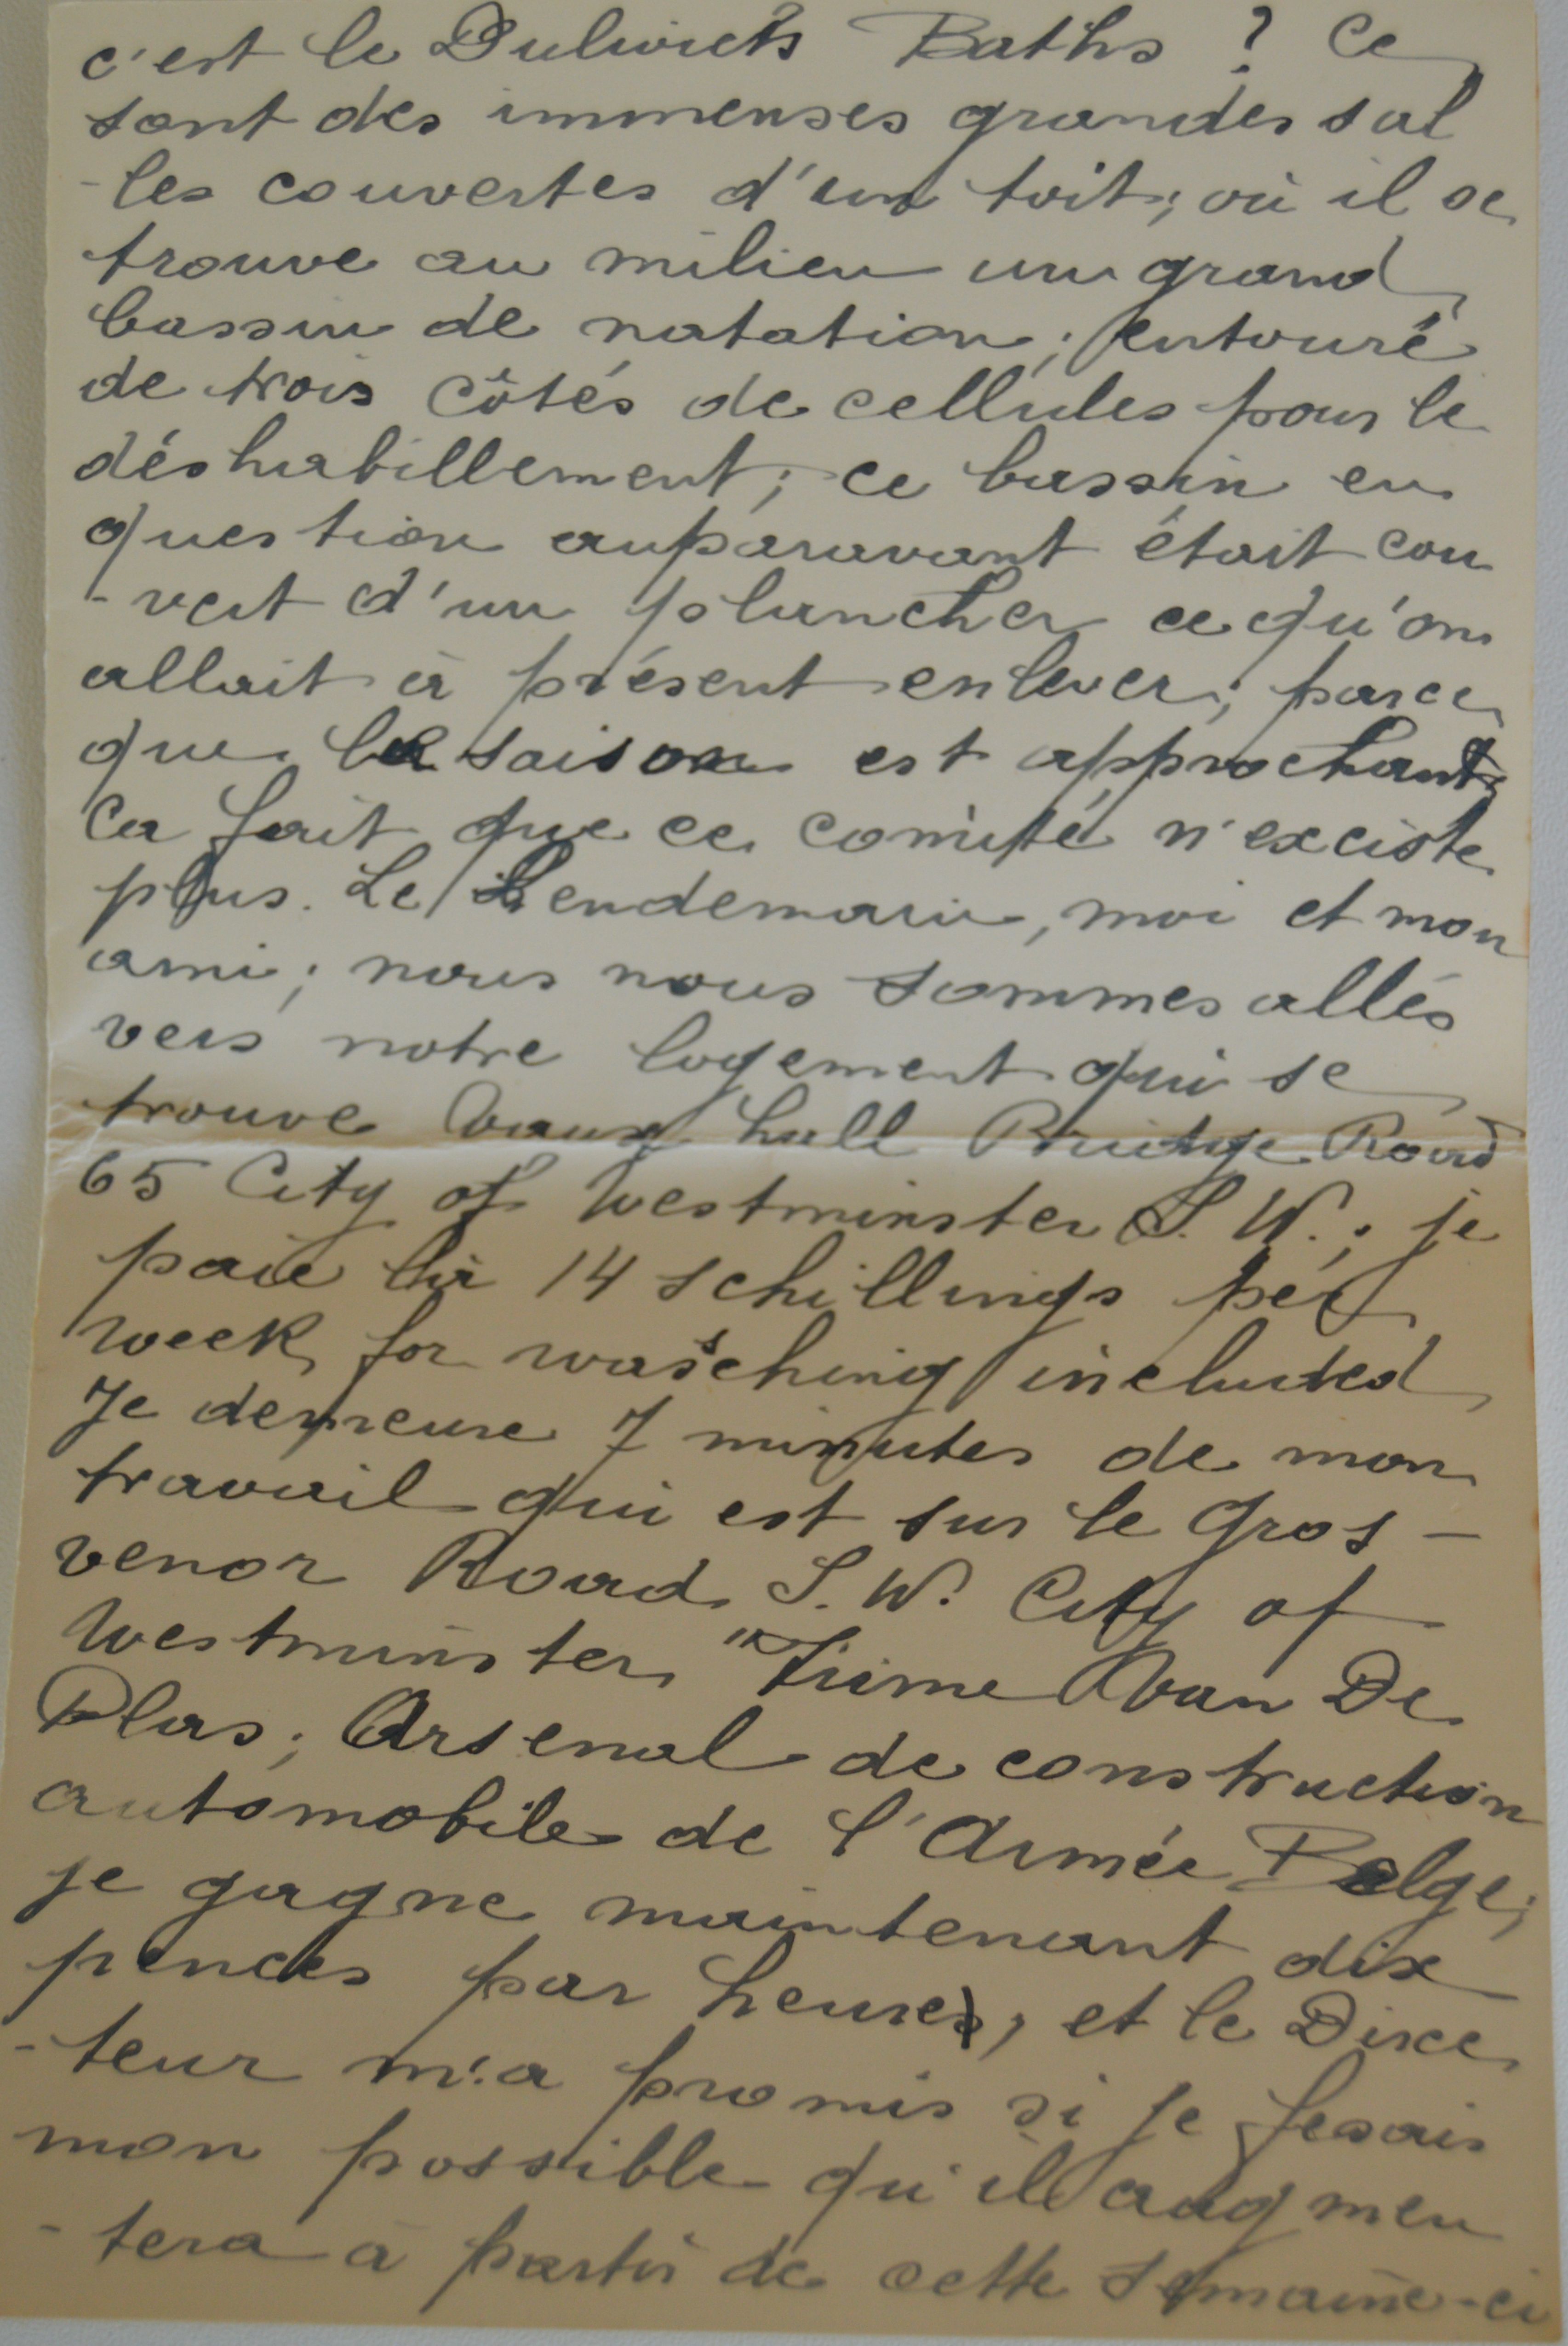 c'est le Dulwich Baths ? Ce
sont des immenses grandes sal
-les couvertes d'un toit; où il se
trouve au milieu un grand
bassin de natation; entouré
de trois côtés de cellules pour le
déshabillement; ce bassin en
question auparavant était cou
-vert d'un plancher ce qu'on
allait à présent enlever; parce
que la saison est approchant
Ca fait que ce comité n'exciste
plus. Le Lendemain, moi et mon
ami; nous nous sommes allés
vers notre logement qui se
trouve Vauxhall Bridge Road
65 City of Westminster S.W.; je
paie là 14 schillings per
week for wasching included
Je demeure 7 minutes de mon
travail qui est sur le Gros-
venor Road S.W. City of
Westminster "Firme Van De
Plas; Arsenal de construction
automobile de l'Armée Belge;
je gagne maintenant dix
pences par heures, et le Direc
-teur m'a promis si je fesais
mon possible qu'il augmen
-tera à partir de cette semaine-ci